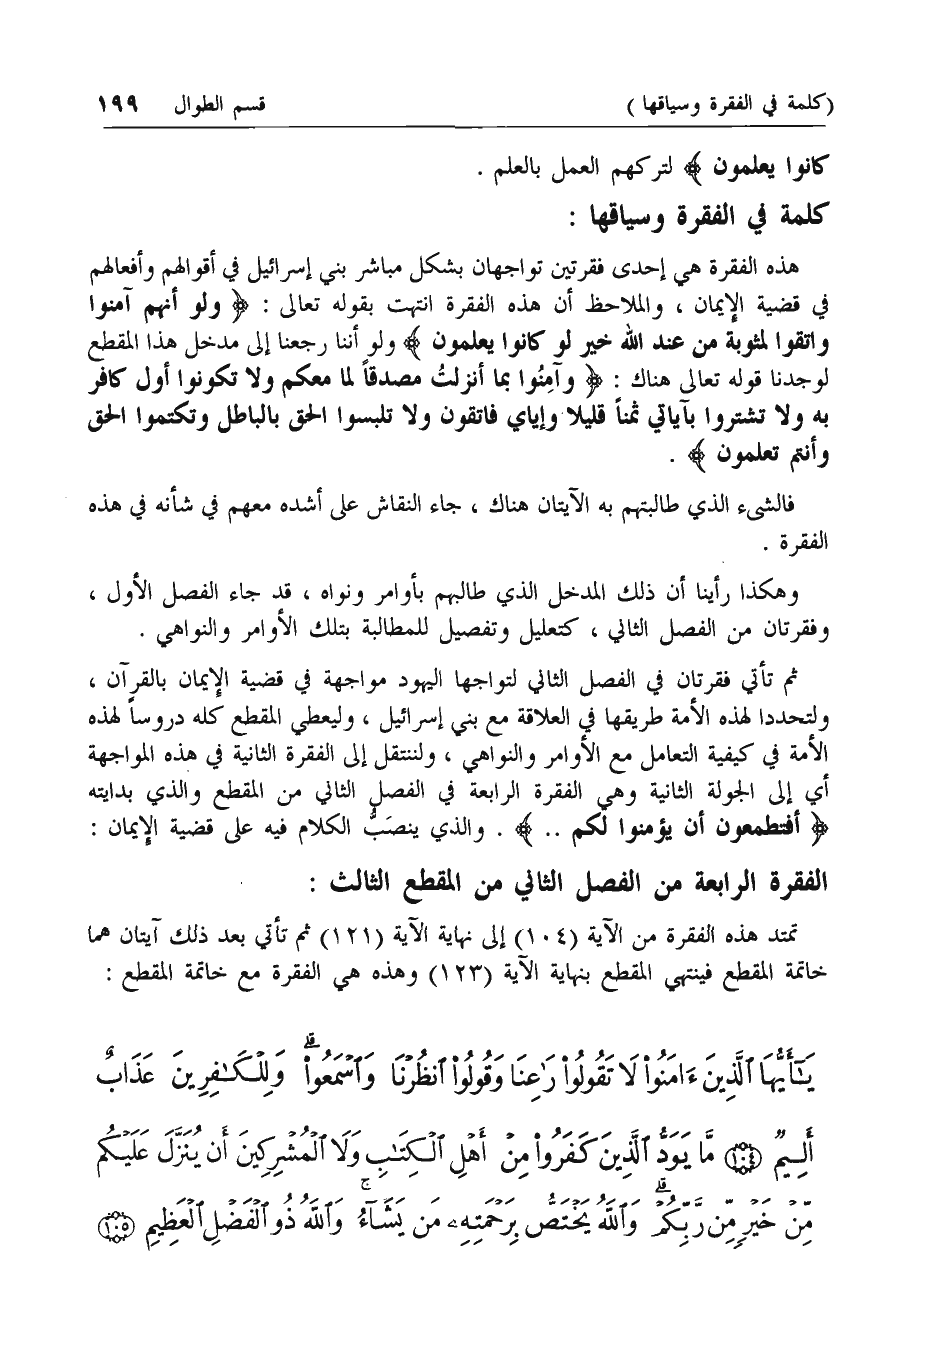 (كلمة في الفقرة وسياقها) قسم الطوال ١٩٩
كانوا يعلمون ﴾ لتركهم العمل بالعلم .
كلمة في الفقرة وسياقها :
هذه الفقرة هي إحدى فقرتين تواجهان بشكل مباشر بني إسرائيل في أقوالهم وأفعالهم
في قضية الإيمان ، والملاحظ أن هذه الفقرة انتهت بقوله تعالى : ﴿ ولو أنهم آمنوا
واتقوا لمثوبة من عند الله خير لو كانوا يعلمون ﴾ ولو أننا رجعنا إلى مدخل هذا المقطع
لوجدنا قوله تعالى هناك : ﴿ وآمِنُوا بما أنزلتُ مصدقاً لما معكم ولا تكونوا أول كافر
به ولا تشتروا بآياتي ثمناً قليلا وإياي فاتقون ولا تلبسوا الحق بالباطل وتكتموا الحق
وأنتم تعلمون ﴾ .
فالشىء الذي طالبتهم به الآيتان هناك ، جاء النقاش على أشده معهم في شأنه في هذه
الفقرة .
وهكذا رأينا أن ذلك المدخل الذي طالبهم بأوامر ونواه ، قد جاء الفصل الأول ،
وفقرتان من الفصل الثاني ، كتعليل وتفصيل للمطالبة بتلك الأوامر والنواهي .
ثم تأتي فقرتان في الفصل الثاني لتواجها اليهود مواجهة في قضية الإيمان بالقرآن ،
ولتحددا لهذه الأمة طريقها في العلاقة مع بني إسرائيل ، وليعطي المقطع كله دروساً لهذه
الأمة في كيفية التعامل مع الأوامر والنواهي ، ولننتقل إلى الفقرة الثانية في هذه المواجهة
أي إلى الجولة الثانية وهي الفقرة الرابعة في الفصل الثاني من المقطع والذي بدايته
﴿ أفتطمعون أن يؤمنوا لكم .. ﴾ . والذي ينصَبُّ الكلام فيه على قضية الإيمان :
الفقرة الرابعة من الفصل الثاني من المقطع الثالث :
تمتد هذه الفقرة من الآية (١٠٤) إلى نهاية الآية (١٢١) ثم تأتي بعد ذلك آيتان هما
خاتمة المقطع فينتهي المقطع بنهاية الآية (١٢٣) وهذه هي الفقرة مع خاتمة المقطع :
يَـٰٓأَيُّهَا ٱلَّذِينَ ءَامَنُوا۟ لَا تَقُولُوا۟ رَٰعِنَا وَقُولُوا۟ ٱنظُرْنَا وَٱسْمَعُوا۟ ۗ وَلِلْكَـٰفِرِينَ عَذَابٌ
أَلِيمٌ ١٠٤ مَّا يَوَدُّ ٱلَّذِينَ كَفَرُوا۟ مِنْ أَهْلِ ٱلْكِتَـٰبِ وَلَا ٱلْمُشْرِكِينَ أَن يُنَزَّلَ عَلَيْكُم
مِّنْ خَيْرٍ مِّن رَّبِّكُمْ ۗ وَٱللَّهُ يَخْتَصُّ بِرَحْمَتِهِۦ مَن يَشَآءُ ۚ وَٱللَّهُ ذُو ٱلْفَضْلِ ٱلْعَظِيمِ ١٠٥